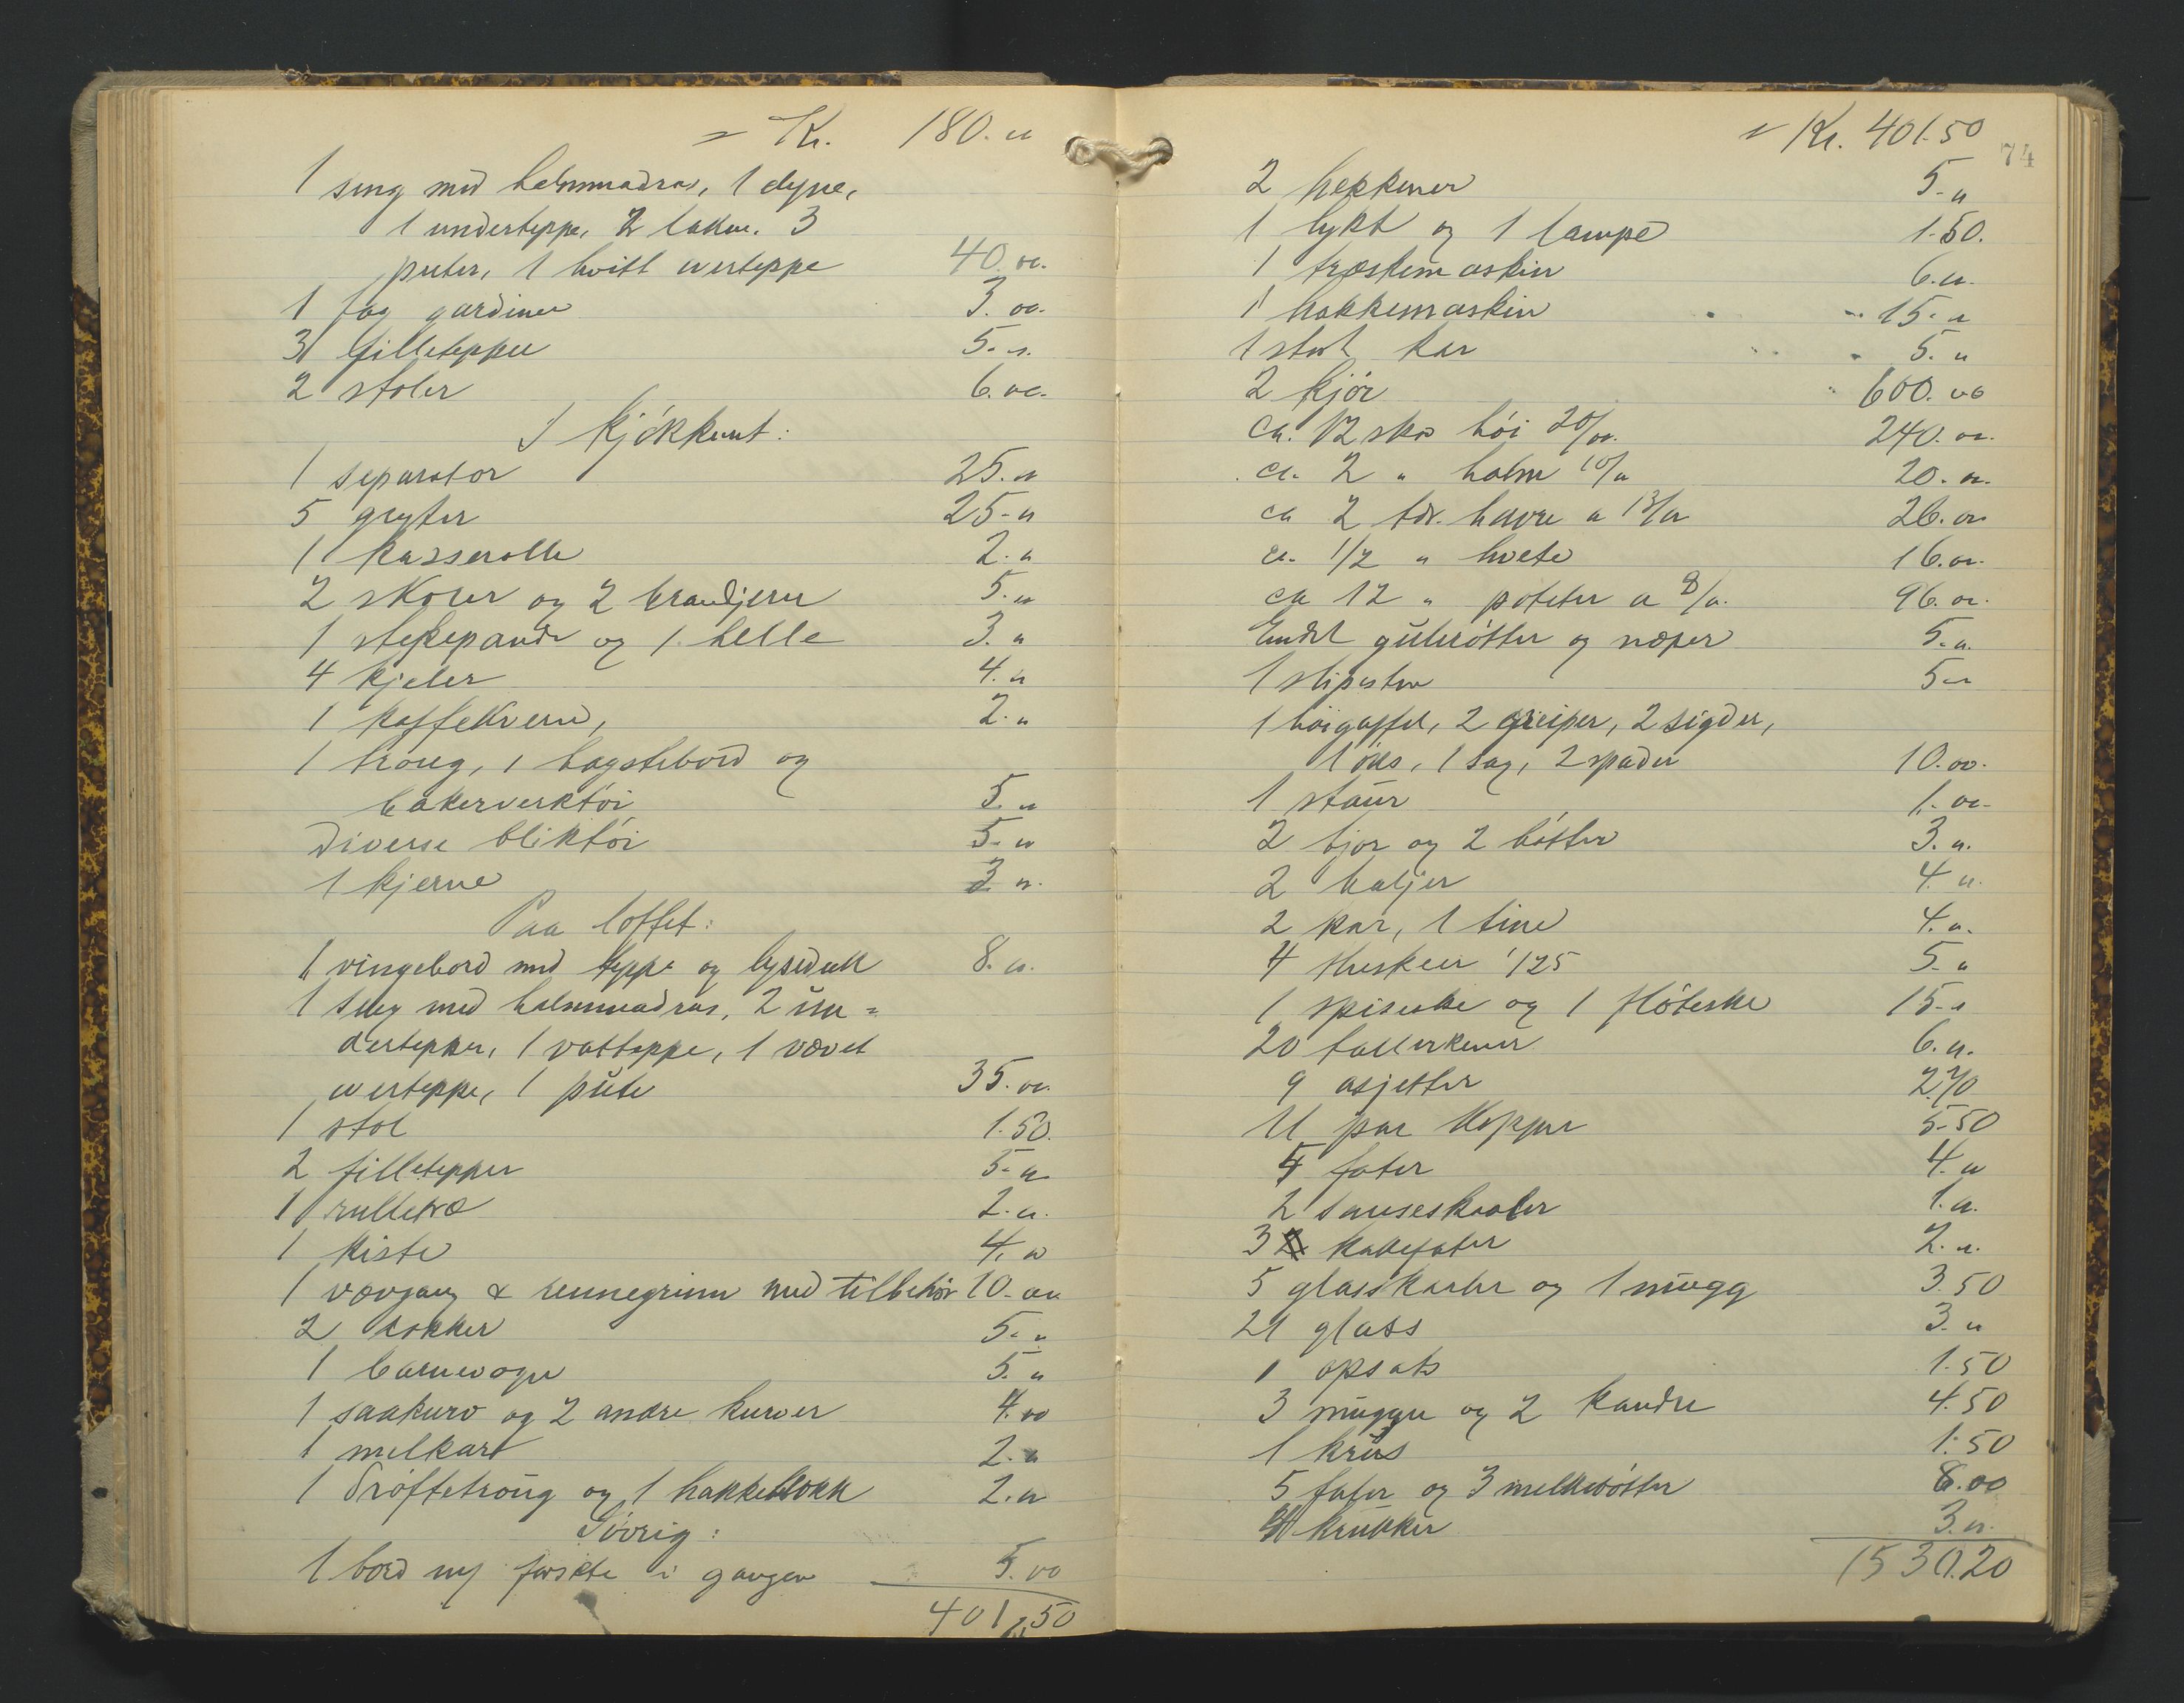 Kr. 180.00
1 seng med halmmadras, 1 dyne,
1 underteppe, 2 laken. 3
puter, 1 hvitt overteppe 40.00.
1 fag gardiner 3.00.
3 filletepper 5.00.
2 stoler 6.00.
I kjøkkenet:
1 separator 25.00
5 gryter 25.00
1 kasserolle 2.00
2 skorer og 2 brandjern 5.00
1 stekepande og 1 helle 3.00
4 kjeler 4.00
1 kaffekvern, 2.00
1 traug, 1 bagstebord og
bakerverktøi 5.00
Diverse bliktøi 5.00
1 kjerne 3.00
Paa loftet:
1 vingebord med teppe og lyseduk 8.00.
1 seng med halmmadras, 2 un-
dertepper, 1 vatteppe, 1 vævet
overteppe, 1 pute 35.00.
1 stol 1.50.
2 filletepper 5.00
1 rulletræ 2.00.
1 kiste 4.00
1 vævgang & rennegrinn med tilbehør 10.00
2 rokker 5.00
1 barnevogn 5.00
1 saakurv og 2 andre kurver 4.00
1 melkar 2.00
1 drøftetraug og 1 hakkeblokk 2.00
Iøvrig:
1 bord i gangen 5.00
401.50
Kr. 401.50
74
2 5.00
1 lykt og 1 lampe 1.50.
1 træskemaskin 6.00.
1 hakkemaskin 15.00
1 stort kar 5.00
2 kjør 600.00
ca. 12 høi 20/00. 240.00.
ca. 2 " halm 10/00 20.00.
ca 2 tdr. havre a 13/00 26.00
ca. 1/2 " hvete 16.00.
ca 12 " poteter a 8/00. 96.00.
Endel gulerøtter og næper 5.00.
1 slipesten 5.00
1 høigaffel, 2 greiper, 2 sigder,
1 øks, 1 sag, 2 spader 10.00.
1 staur 1.00
2 bjor og 2 bøtter 3.00.
2 baljer 4.00.
2 kar, 1 tine 4.00.
4 theskeer 1/25 5.00
1 spiseske og 1 fløteske 15.00
20 tallerkener 6.00.
9 asjetter 2.70
11 par kopper 5.50
4 fater 4.00
2 sauseskaaler 1.00.
3 kakefater 2.00.
5 glasskarter og 1 mugg 3.50
21 glass 3.00
1 opsats 1.50
3 mugger og 2 kander 4.50
1 krus 1.50
5 fater og 3 melkebøtter 8.00
krukker 3.00.
1530.20